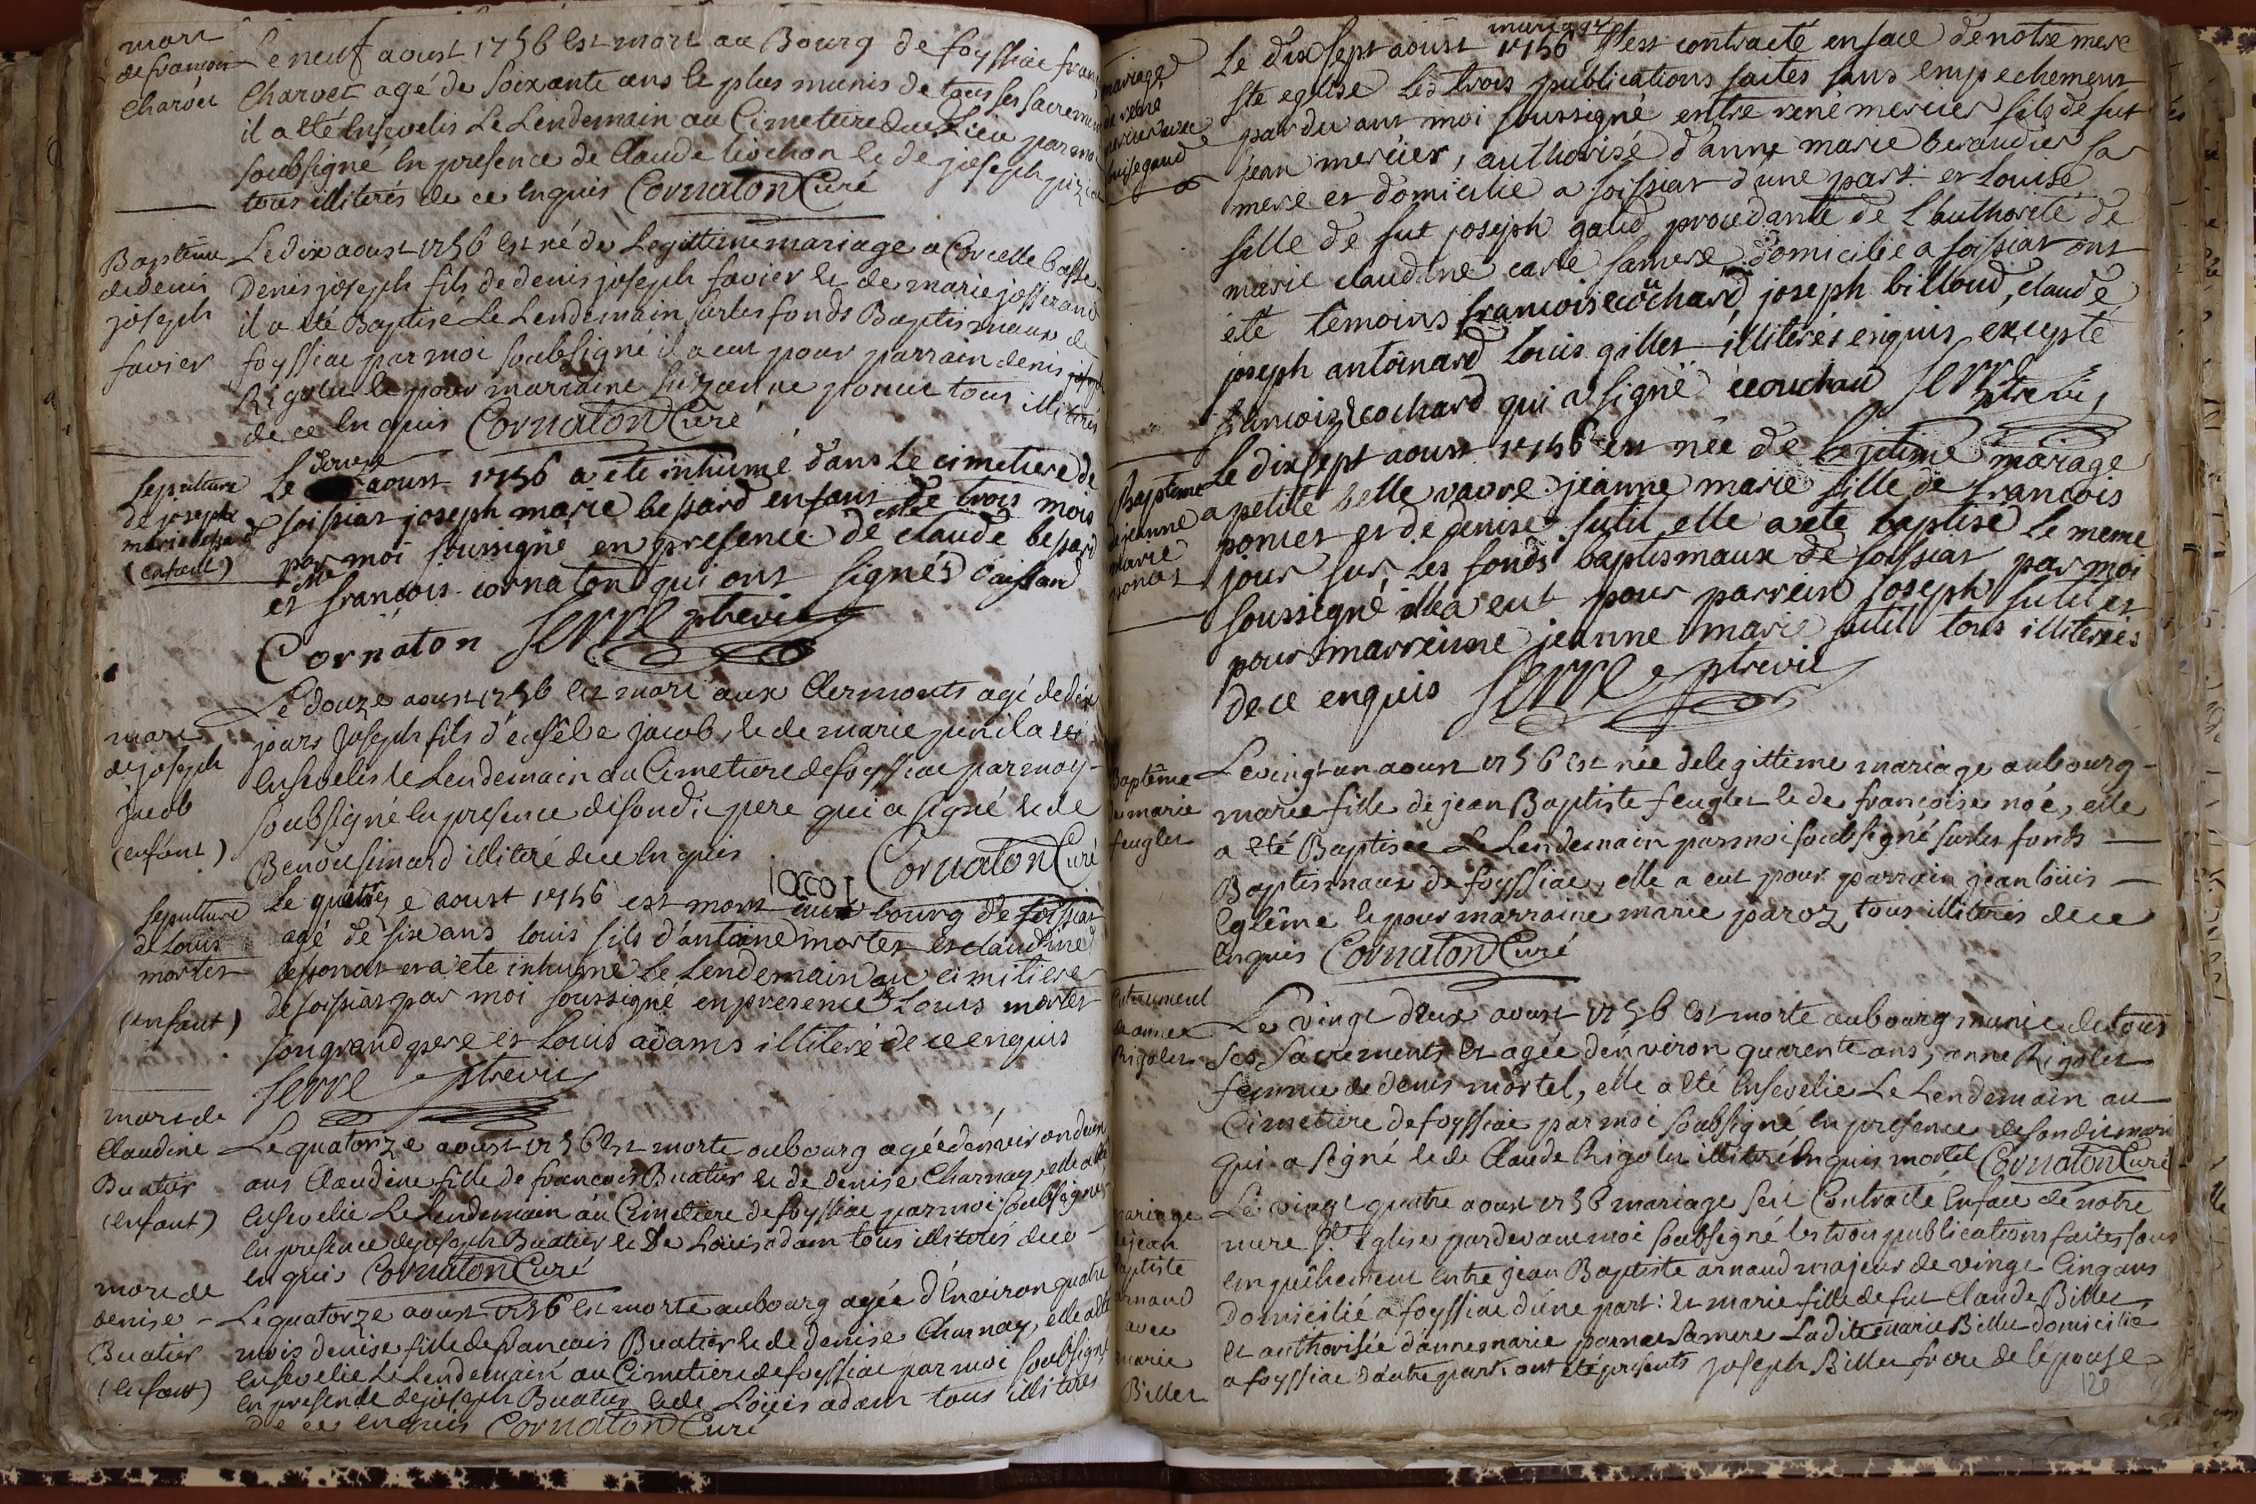 mort
de francois
Charvet
Le neuf aoust 1756 est mort au Bourg de foyssiac
Charvet agé de soixante ans le plus munis de tous ses sacrements
il a eté Ensevelis Le Lendemain au Cimetiere dud Lieu par moi
soubsigné En presence de Claude cochon et de joseph
tous illiterés de ce Enquis Cornaton Curé
Baptême
de denis
joseph
favier
Le dix aoust 1756 est né de Legittime mariage a Corcelle
Denis joseph fils de denis joseph favier et de marie josserand
il a eté Baptisé Le Lendemain sur les fonds Baptismaux de
foyssiac par moi soubsigné il a eut pour parrain denis joseph
Rigolet et pour marraine suzanne poncet tous illiterés
de ce Enquis Cornaton Curé
sepulture
de joseph
marie bessard
(enfant)
Le douze aoust 1756 a eté inhumé dans Le cimetiere de
foissiat joseph marie bessard enfant de trois mois
par moi soussigné en presence de claude bessard
et francois cornaton qui ont signés
Cornaton Serre ptre vic
mort
de joseph
jacob
(enfant)
Le douze aoust 1756 est mort aux Clermonts agé de dix
jours Joseph fils d'eusêbe jacob, et de marie il a eté
Ensevelis le Lendemain au Cimetiere de foyssiac par moy
soubsigné En presence de sondit pere qui a signé et de
Benoit simard illiteré de ce Enquis
iacob Cornaton Curé
sepulture
de Louis
mortet
(enfant)
Le aoust 1756 est mort bourg de foissiat
agé de six ans louis fils d'antoine mortet et claudine
et a eté inhumé Le Lendemain au cimitiere
de foissiat par moi soussigné en presence de Louis mortet
son grand pere et Louis adams illiteré de ce enquis
Serre ptre vic
mort de
Claudine
Buatier
(enfant)
Le quatorze aoust 1756 est morte au bourg agée d'environ deux
ans Claudine fille de francois Buatier et de Denise Charnay, elle a eté
Ensevelie Le Lendemain au Cimetiere de foyssiac par moi soubsigné
En presence de joseph Buatier et De Louis adam tous illiterés de ce
Enquis Cornaton Curé
mort de
denise
Buatier
(enfant)
Le quatorze aoust 1756 est morte au bourg agée d'Environ quatre
mois denise fille de francois Buatier et de denise Charnay, elle a eté
Ensevelie Le Lendemain au Cimetiere de foyssiac par moi soubsigné
En presence de joseph Buatier et de Louis adam tous illiterés
de ce Enquis Cornaton Curé
mariage
de rene
mercier avec
louise gaud
mariage
Le dix sept aoust 1756 s'est contracté en face de notre mere
ste eglise Les trois publications faites sans empechement
par devant moi soussigné entre rené mercier fils de fut
jean mercier, authorisé d'anne marie beraudier sa
mere et domicilie a foissiat d'une part et Louise
fille de fut joseph gaud procedante de L'authorité de
marie claudine carle sa mere domicilie a foissiat ont
eté temoins francois couchard, joseph billoud, claude
joseph antoinard Louis gillet illiterés enquis, excepté
francois cochard qui a signé couchard Serre ptre vic
Baptême
de jeanne
marie
poncet
Le dix sept aoust 1756 est née de legitime mariage
a petite belle vavre jeanne marie fille de francois
poncet et de denise sutil elle a eté baptisé Le meme
jour sur Les fonds baptismaux de foissiat par moi
soussigné elle a eut pour parrein Joseph sutil et
pour marreinne jeanne marie sutil tous illiterés
de ce enquis Serre ptre vic
Baptême
de marie
feuglet
Le vingt un aoust 1756 est née de legittime mariage au bourg
marie fille de jean Baptiste feuglet et de francoise noé, elle
a eté Baptisée Le Lendemain par moi soubsigné sur les fonds
Baptismaux de foyssiac, elle a eut pour parrain jean loüis
Eglême et pour marraine marie paroz, tous illiterés de ce
Enquis Cornaton Curé
Enterrement
de anne
Rigolet
Le vingt deux aoust 1756 est morte au bourg munie de tous
ses sacrements et agée d'environ quarente ans, anne Rigolet
femme de denis mortel, elle a eté Ensevelie Le Lendemain au
Cimetiere de foyssiac par moi soubsigné En presence de sondit mari
qui a signé et de Claude Rigolet illiteré Enquis mortel Cornaton Curé
mariage
de jean
Baptiste
arnaud
avec
marie
Billet
Le vingt quatre aoust 1756 mariage s'est Contracté En face de notre
mere ste Eglise par devant moi soubsigné les trois publications faites sans
Empêchement Entre jean Baptiste arnaud majeur de vingt Cinq ans
Domicilié a foyssiac d'une part: et marie fille de fut Claude Billet
et authorisée d'anne marie sa mere La dite marie Billet domicilie
a foyssiac d'autre part, ont eté presents joseph Billet frere de l'epouse